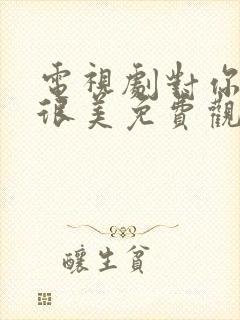 電視劇對你
很美免費觀
釀生貧